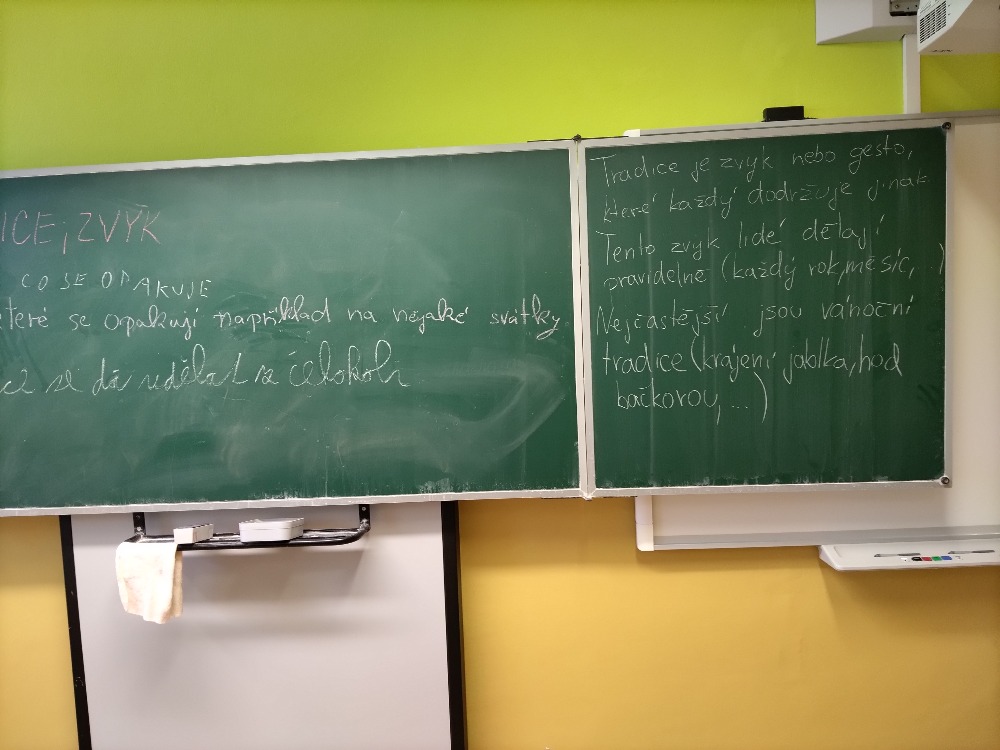 ICE, ZVYK
CO SE OPAKUJE
které se opakují například na nějaké svátky
se dá udělat z čehokoli
Tradice je zvyk nebo gesto,
které každý dodržuje jinak
Tento zvyk lidé dělají
pravidelně (každý rok, měsíc, ..)
Nejčastější jsou vánoční
tradice (krájení jablka, hod
bačkorou, ...)